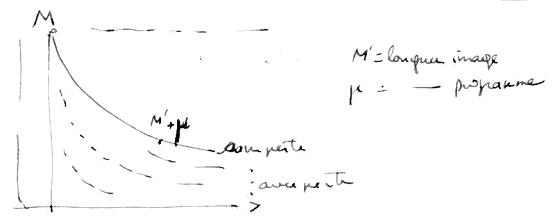 M
M' = longueur image
μ = — programme
M' + μ
sans perte
avec perte